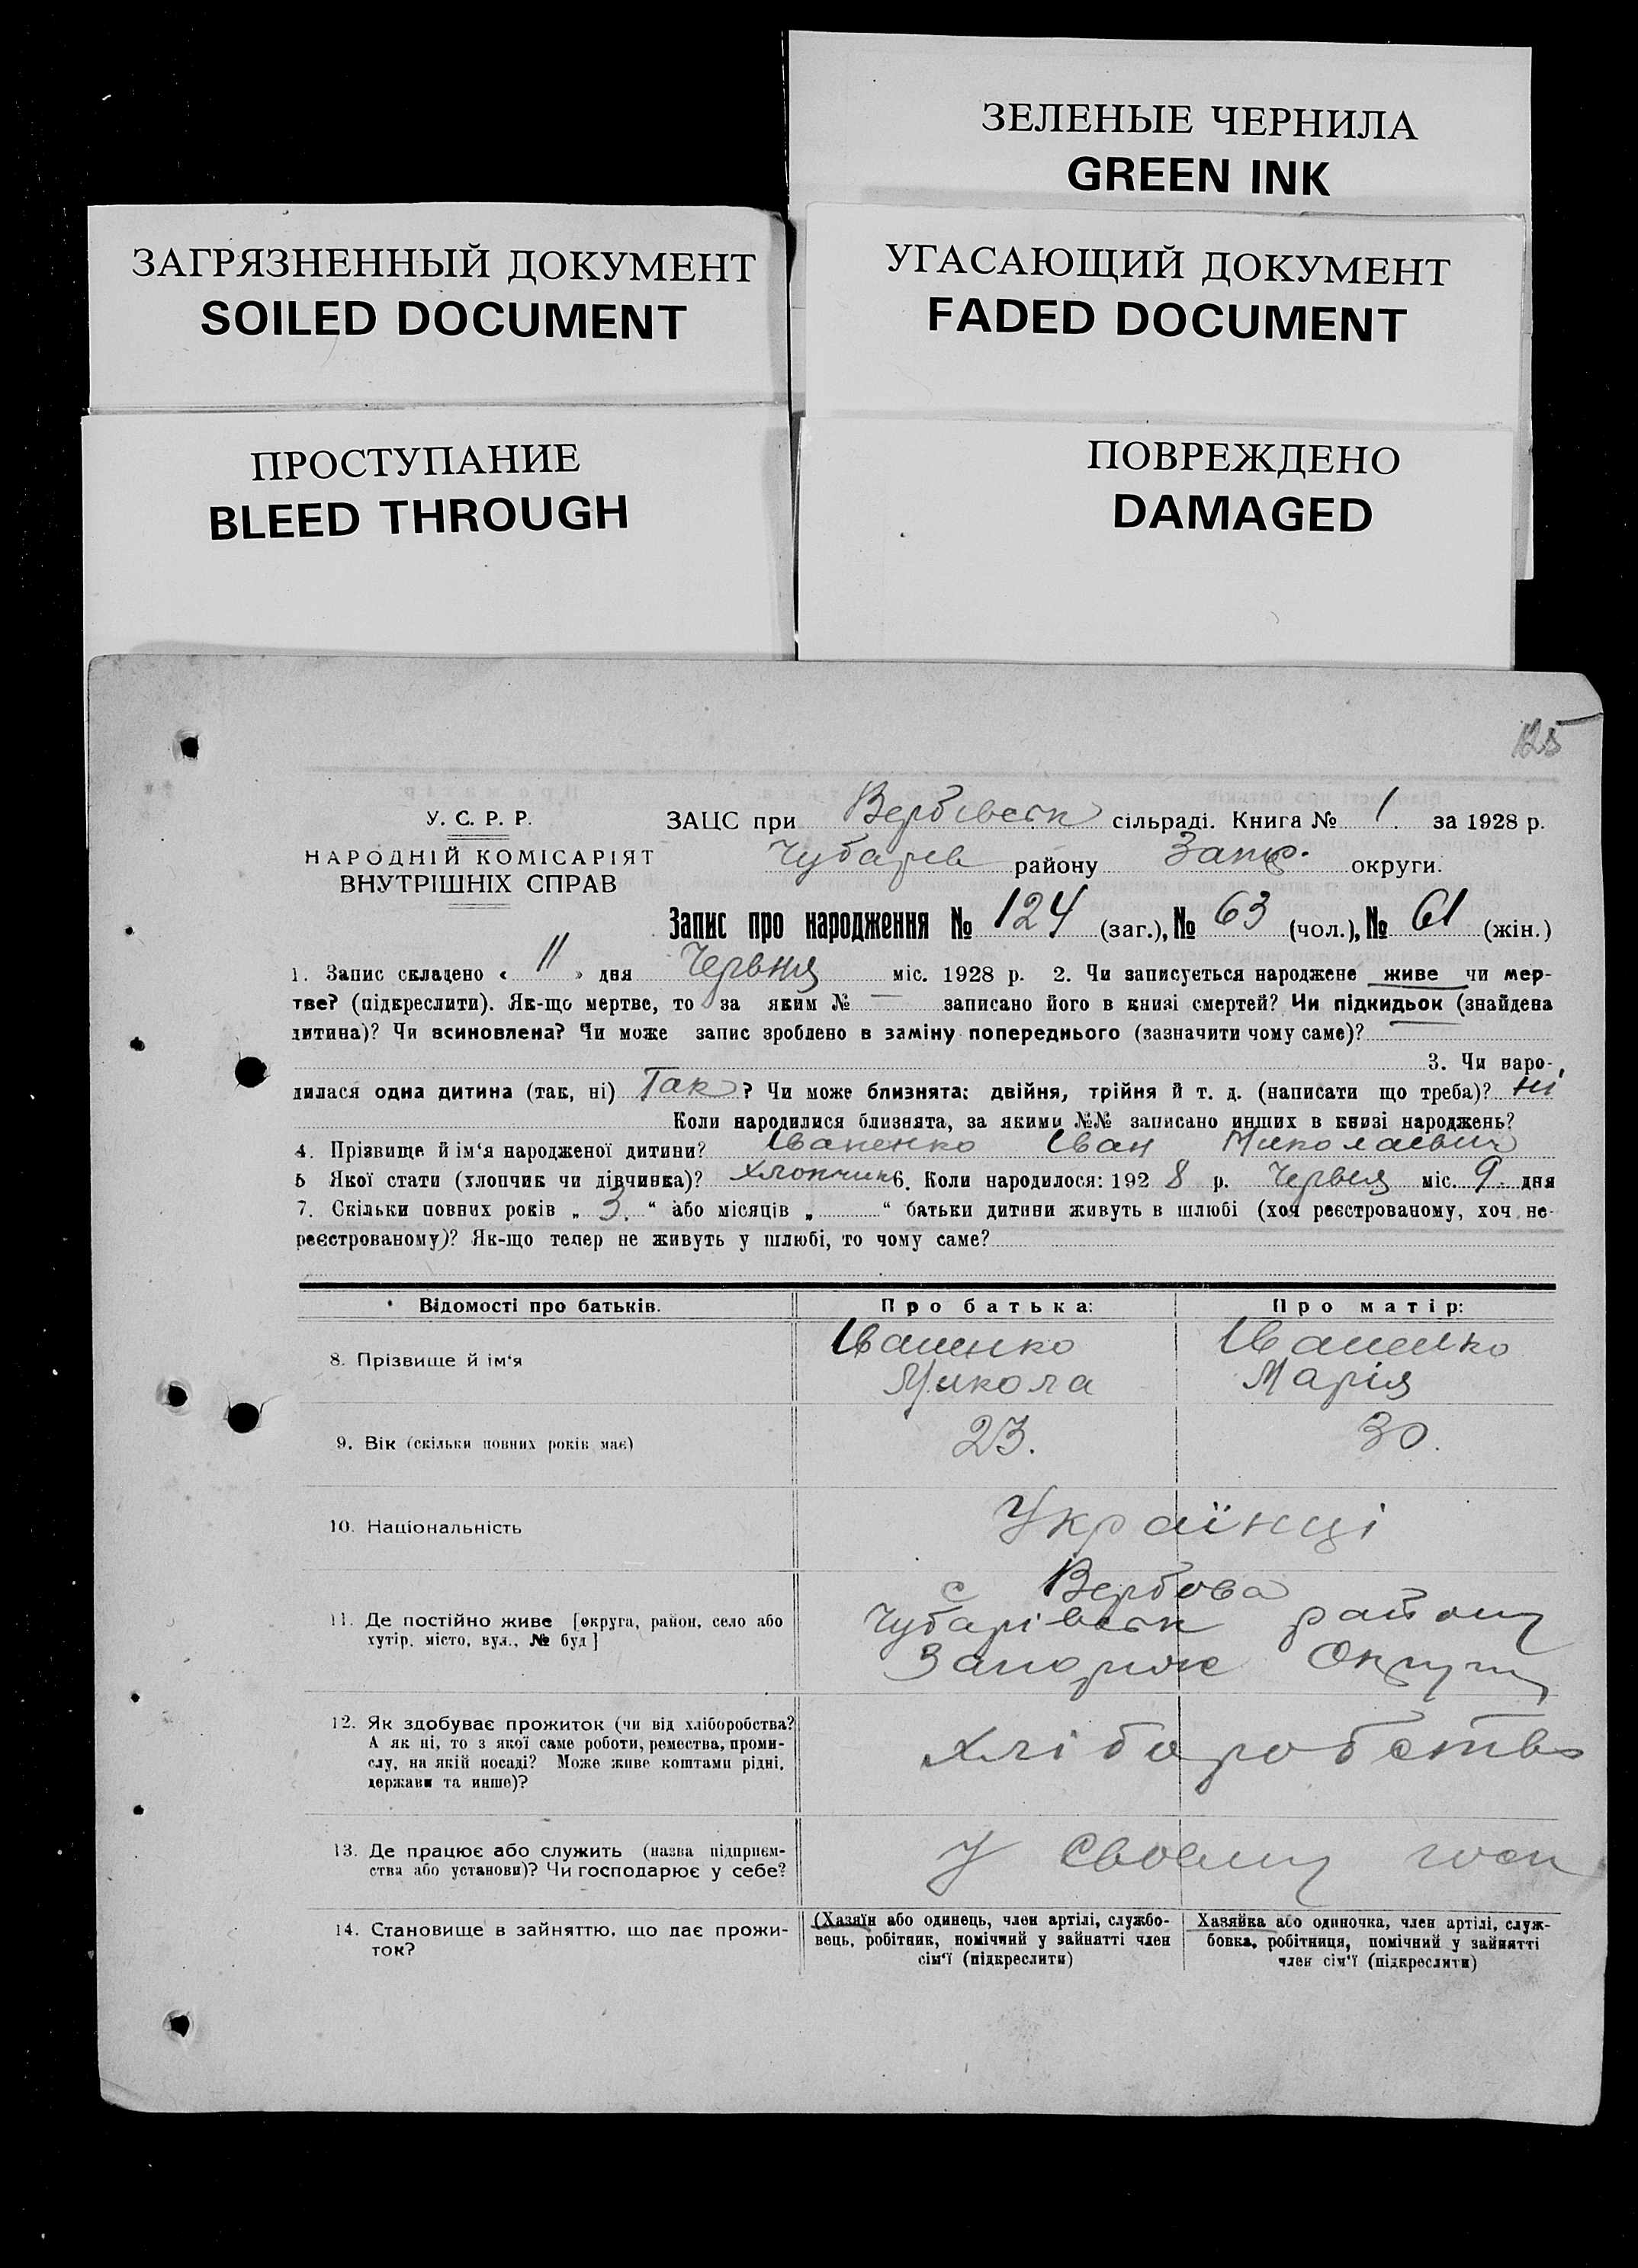 ЗЕЛЕНЫЕ ЧЕРНИЛА
GREEN INK
ЗАГРЯЗНЕННЫЙ ДОКУМЕНТ
SOILED DOCUMENT
УГАСАЮЩИЙ ДОКУМЕНТ
FADED DOCUMENT
ПРОСТУПАНИЕ
BLEED THROUGH
ПОВРЕЖДЕНО
DAMAGED
125
У. С. Р. Р.
НАРОДНІЙ КОМІСАРІЯТ
ВНУТРІШНІХ СПРАВ
ЗАЦС при Вербівськ сільраді. Книга № 1. за 1928 р.
Чубарів району Запор. округи.
Запис про народження № 124 (заг.), № 63 (чол.), № 61 (жін.)
1. Запис складено « 11 » дня Червня міс. 1928 р. 2. Чи записується народжене живе чи мер-
тве? (підкреслити). Як-що мертве, то за яким № — записано його в книзі смертей? Чи підкидьок (знайдена
дитина)? Чи всиновлена? Чи може запис зроблено в заміну попереднього (зазначити чому саме)?
3. Чи наро-
дилася одна дитина (так, ні) Так ? Чи може близнята: двійня, трійня й т. д. (написати що треба)? ні
Коли народилися близнята, за якими №№ записано инших в книзі народжень?
4. Прізвище й ім‘я народженої дитини? Іваненко Іван Миколаєвич
5 Якої стати (хлопчик чи дівчинка)? хлопчик 6. Коли народилося: 1928 р. Червня міс. 9. дня
7. Скільки повних років „ 3. “ або місяців „ “ батьки дитини живуть в шлюбі (хоч реєстрованому, хоч не-
реєстрованому)? Як-що тепер не живуть у шлюбі, то чому саме?
Відомості про батьків.
Про батька:
Про матір:
8. Прізвище й ім‘я
Іваненко
Микола
Іваненко
Марія
9. Вік (скільки повних років має)
23.
30.
10. Національність
Українці
11. Де постійно живе [округа, район, село або
хутір, місто, вул., № буд]
с Вербова
Чубарівськ району
Запоріж Округи
12. Як здобуває прожиток (чи від хліборобства?
А як ні, то з якої саме роботи, ремества, проми-
слу, на якій посаді? Може живе коштами рідні,
держави та инше)?
хліборобство
13. Де працює або служить (назва підприєм-
ства або установи)? Чи господарює у себе?
У своєму госп
14. Становище в зайняттю, що дає прожи-
ток?
(Хазяїн або одинець, член артілі, службо-
вець, робітник, помічний у зайнятті член
сім‘ї (підкреслити)
Хазяйка або одиночка, член артілі, служ-
бовка, робітниця, помічний у зайнятті
член сім‘ї (підкреслити)